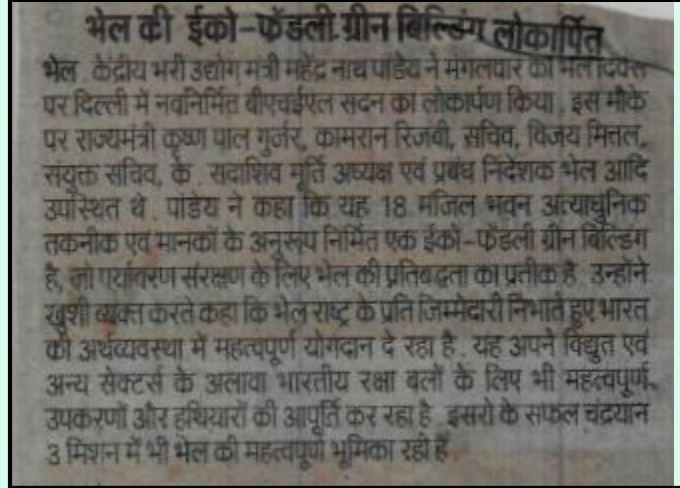 भेल की ईको-फ्रेंडली ग्रीन बिल्डिंग लोकार्पित
भेल . केंद्रीय भरी उद्योग मंत्री महेंद्र नाथ पांडेय ने मंगलवार को भेल दिवस
पर दिल्ली में नवनिर्मित बीएचईएल सदन का लोकार्पण किया . इस मौके
पर राज्यमंत्री कृष्ण पाल गुर्जर, कामरान रिजवी, सचिव, विजय मित्तल,
संयुक्त सचिव, के . सदाशिव मूर्ति अध्यक्ष एवं प्रबंध निदेशक भेल आदि
उपस्थित थे . पांडेय ने कहा कि यह 18 मंजिल भवन अत्याधुनिक
तकनीक एवं मानकों के अनुरूप निर्मित एक ईको-फ्रेंडली ग्रीन बिल्डिंग
है, जो पर्यावरण संरक्षण के लिए भेल की प्रतिबद्धता का प्रतीक है . उन्होंने
खुशी व्यक्त करते कहा कि भेल राष्ट्र के प्रति जिम्मेदारी निभाते हुए भारत
की अर्थव्यवस्था में महत्वपूर्ण योगदान दे रहा है . यह अपने विद्युत एवं
अन्य सेक्टर्स के अलावा भारतीय रक्षा बलों के लिए भी महत्वपूर्ण
उपकरणों और हथियारों की आपूर्ति कर रहा है . इसरो के सफल चंद्रयान
3 मिशन में भी भेल की महत्वपूर्ण भूमिका रही है